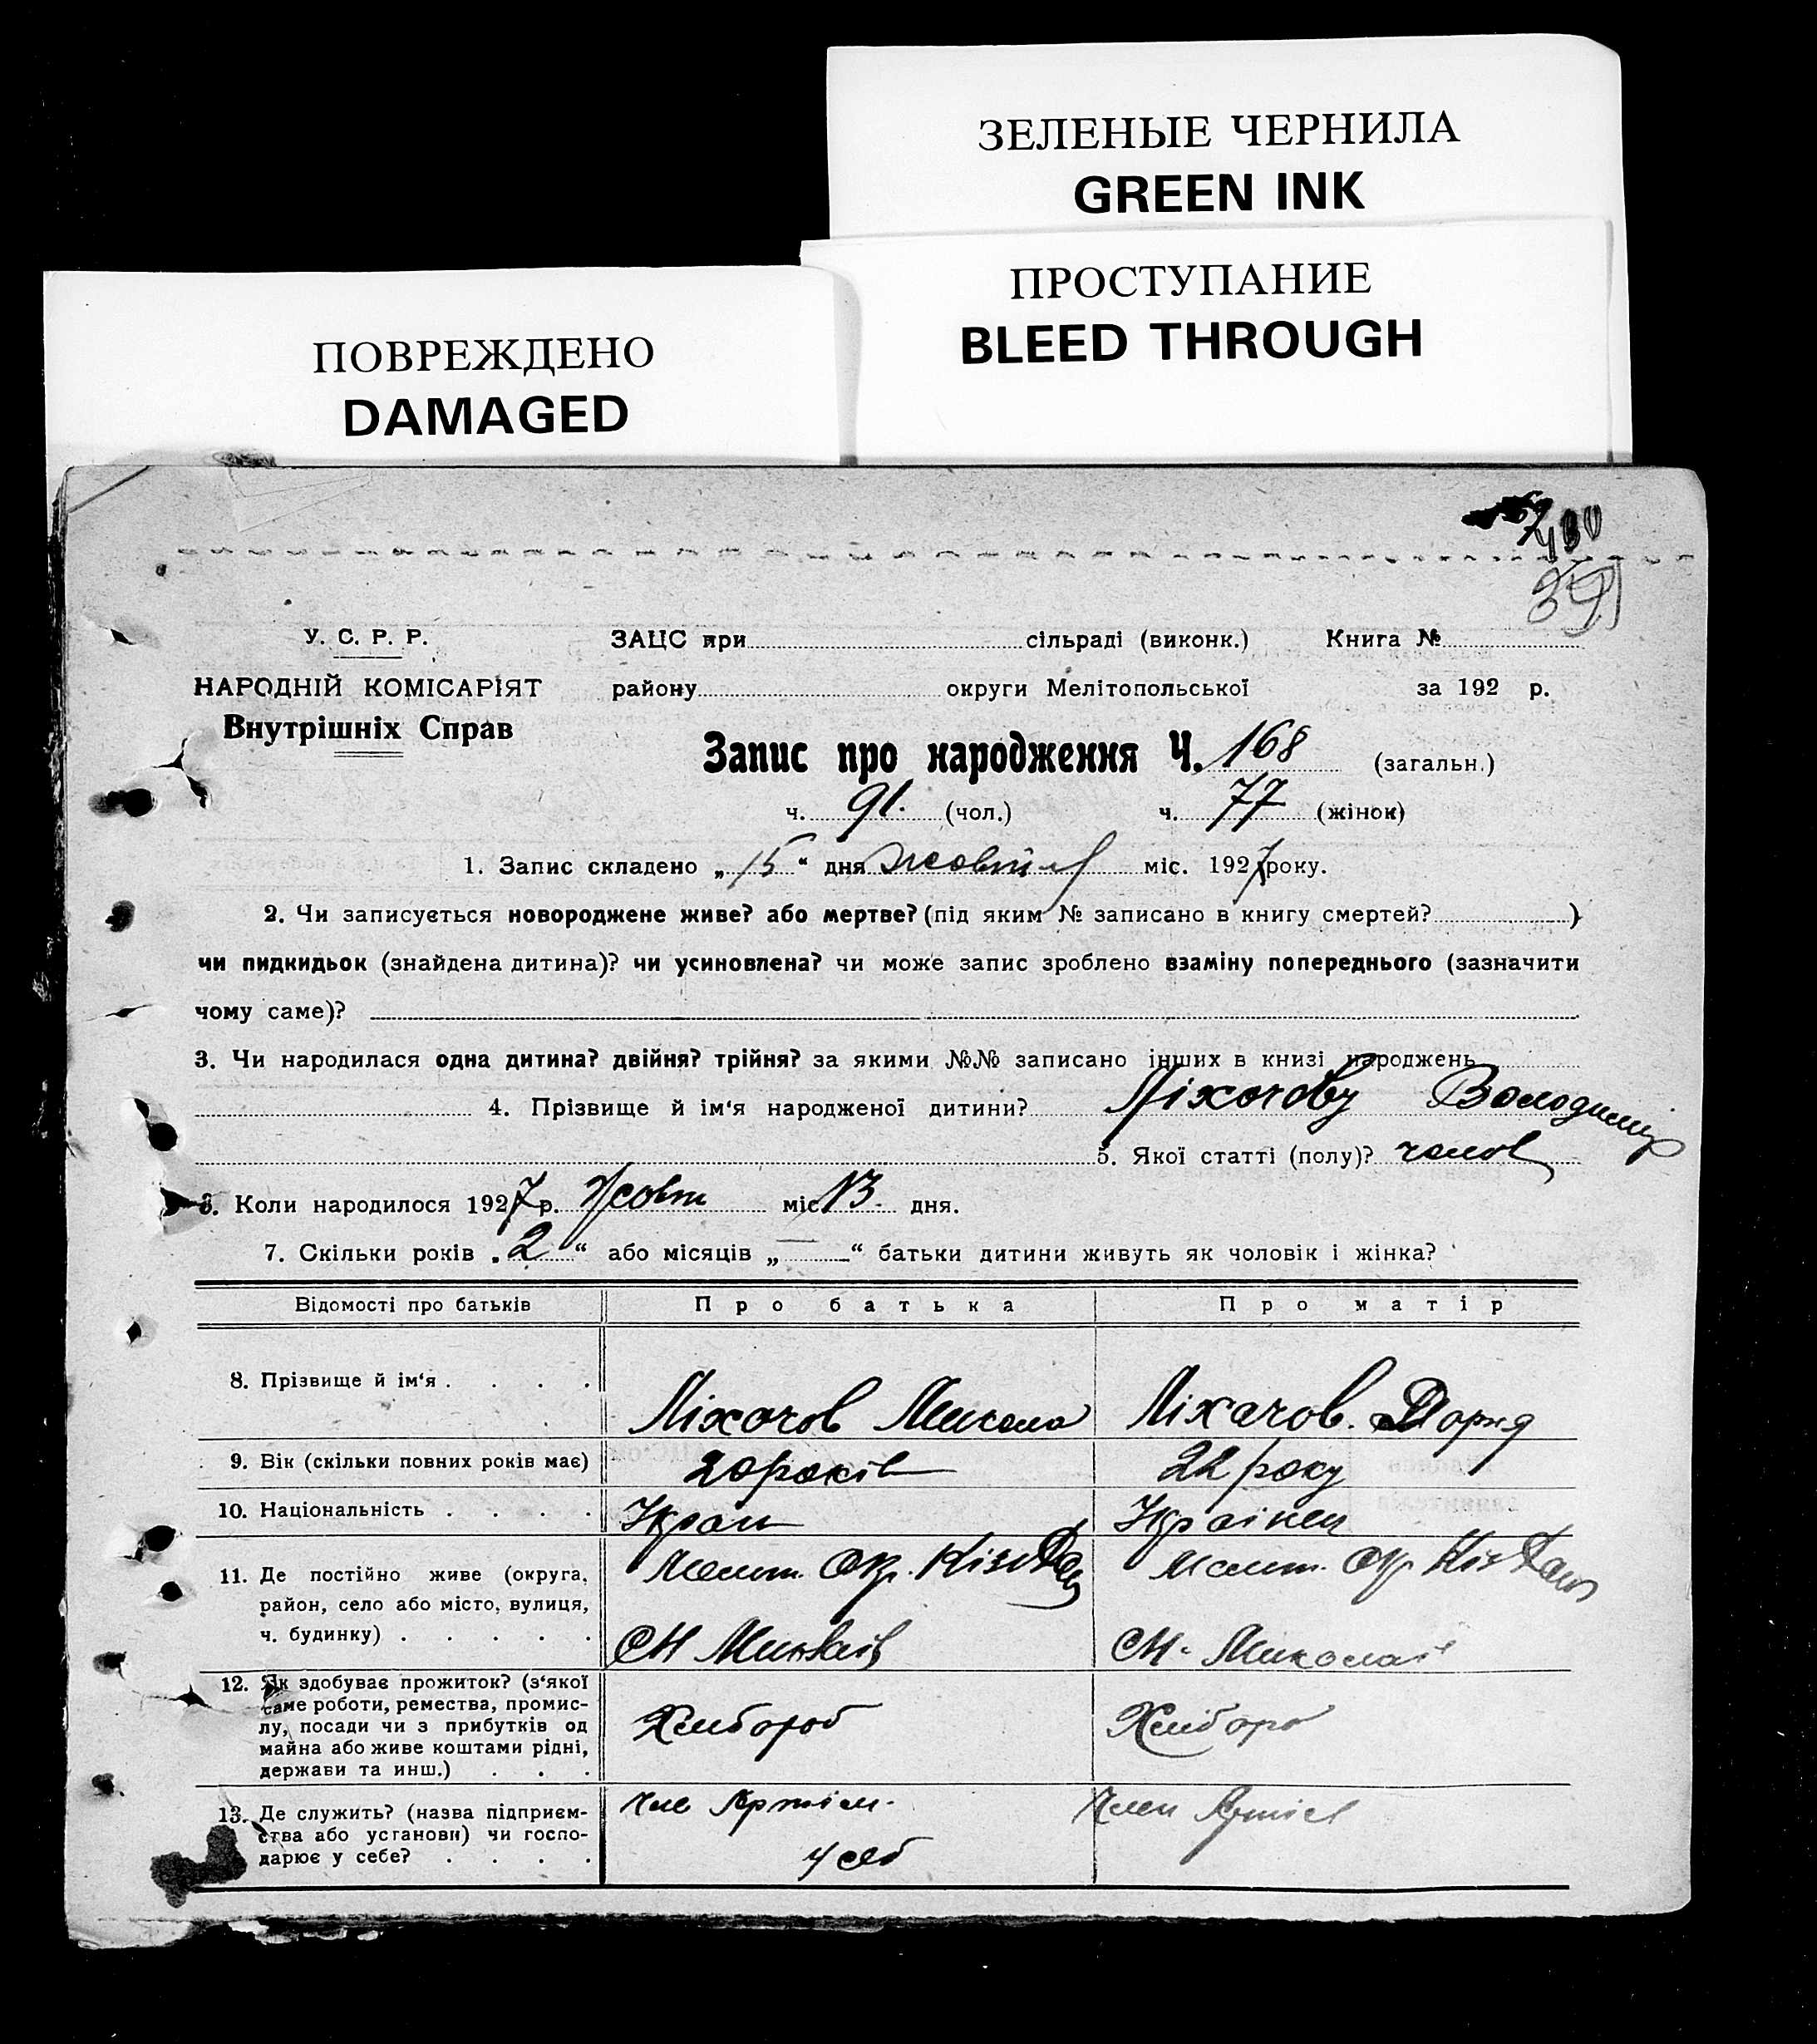 ЗЕЛЕНЫЕ ЧЕРНИЛА
GREEN INK
ПРОСТУПАНИЕ
BLEED THROUGH
ПОВРЕЖДЕНО
DAMAGED
У. С. Р. Р. ЗАЦС при сільраді (виконк.) Книга №
НАРОДНІЙ КОМІСАРІЯТ району округи Мелітопольської за 192 р.
Внутрішніх Справ
Запис про народження Ч. 168 (загальн.)
ч. 91. (чол.) ч. 77 (жінок)
1. Запис складено „ 15 “ дня міс. 1927 року.
2. Чи записується новороджене живе? або мертве? (під яким № записано в книгу смертей? )
чи пидкидьок (знайдена дитина)? чи усиновлена? чи може запис зроблено взаміну попереднього (зазначити
чому саме)?
3. Чи народилася одна дитина? двійня? трійня? за якими №№ записано інших в книзі народжень
4. Прізвище й ім‘я народженої дитини? Володимир
5. Якої статті (полу)? чолов
6. Коли народилося 1927 р. Жовт міс. 13 дня.
7. Скільки років „ 2 “ або місяців „ — “ батьки дитини живуть як чоловік і жінка?
Відомості про батьків Про батька Про матір
8. Прізвище й ім‘я . . . . Ліхачов Микола Ліхачов. Дарія
9. Вік (скільки повних років має) 20 років 22 року
10. Національність . . . . Украін
11. Де постійно живе (округа, Меліт. Окр. Меліт. Окр
район, село або місто, вулиця,
ч. будинку) . . . . . СН СН. Миколаї
12. Як здобуває прожиток? (з‘якої
саме роботи, ремества, промис-
лу, посади чи з прибутків од Хлібороб Хлібороб
майна або живе коштами рідні,
держави та инш.) . . .
13. Де служить? (назва підприєм- Член Артіл
ства або установи) чи госпо-
дарює у себе? . . . . у себ